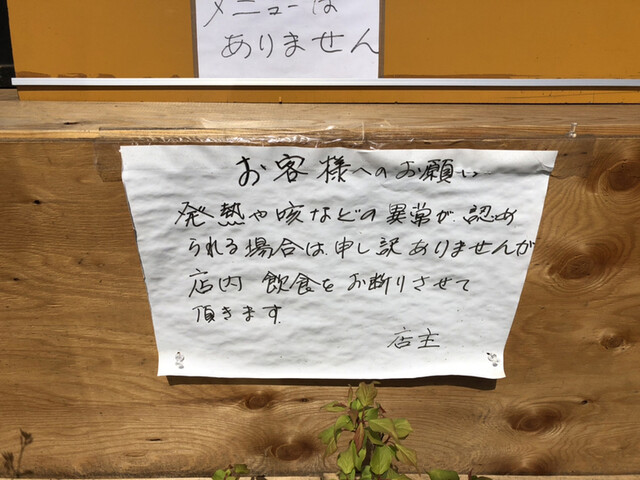 メニューは
ありません
お客様へのお願い
発熱や咳などの異常が認め
られる場合は申し訳ありませんが
店内飲食をお断りさせて
頂きます
店主